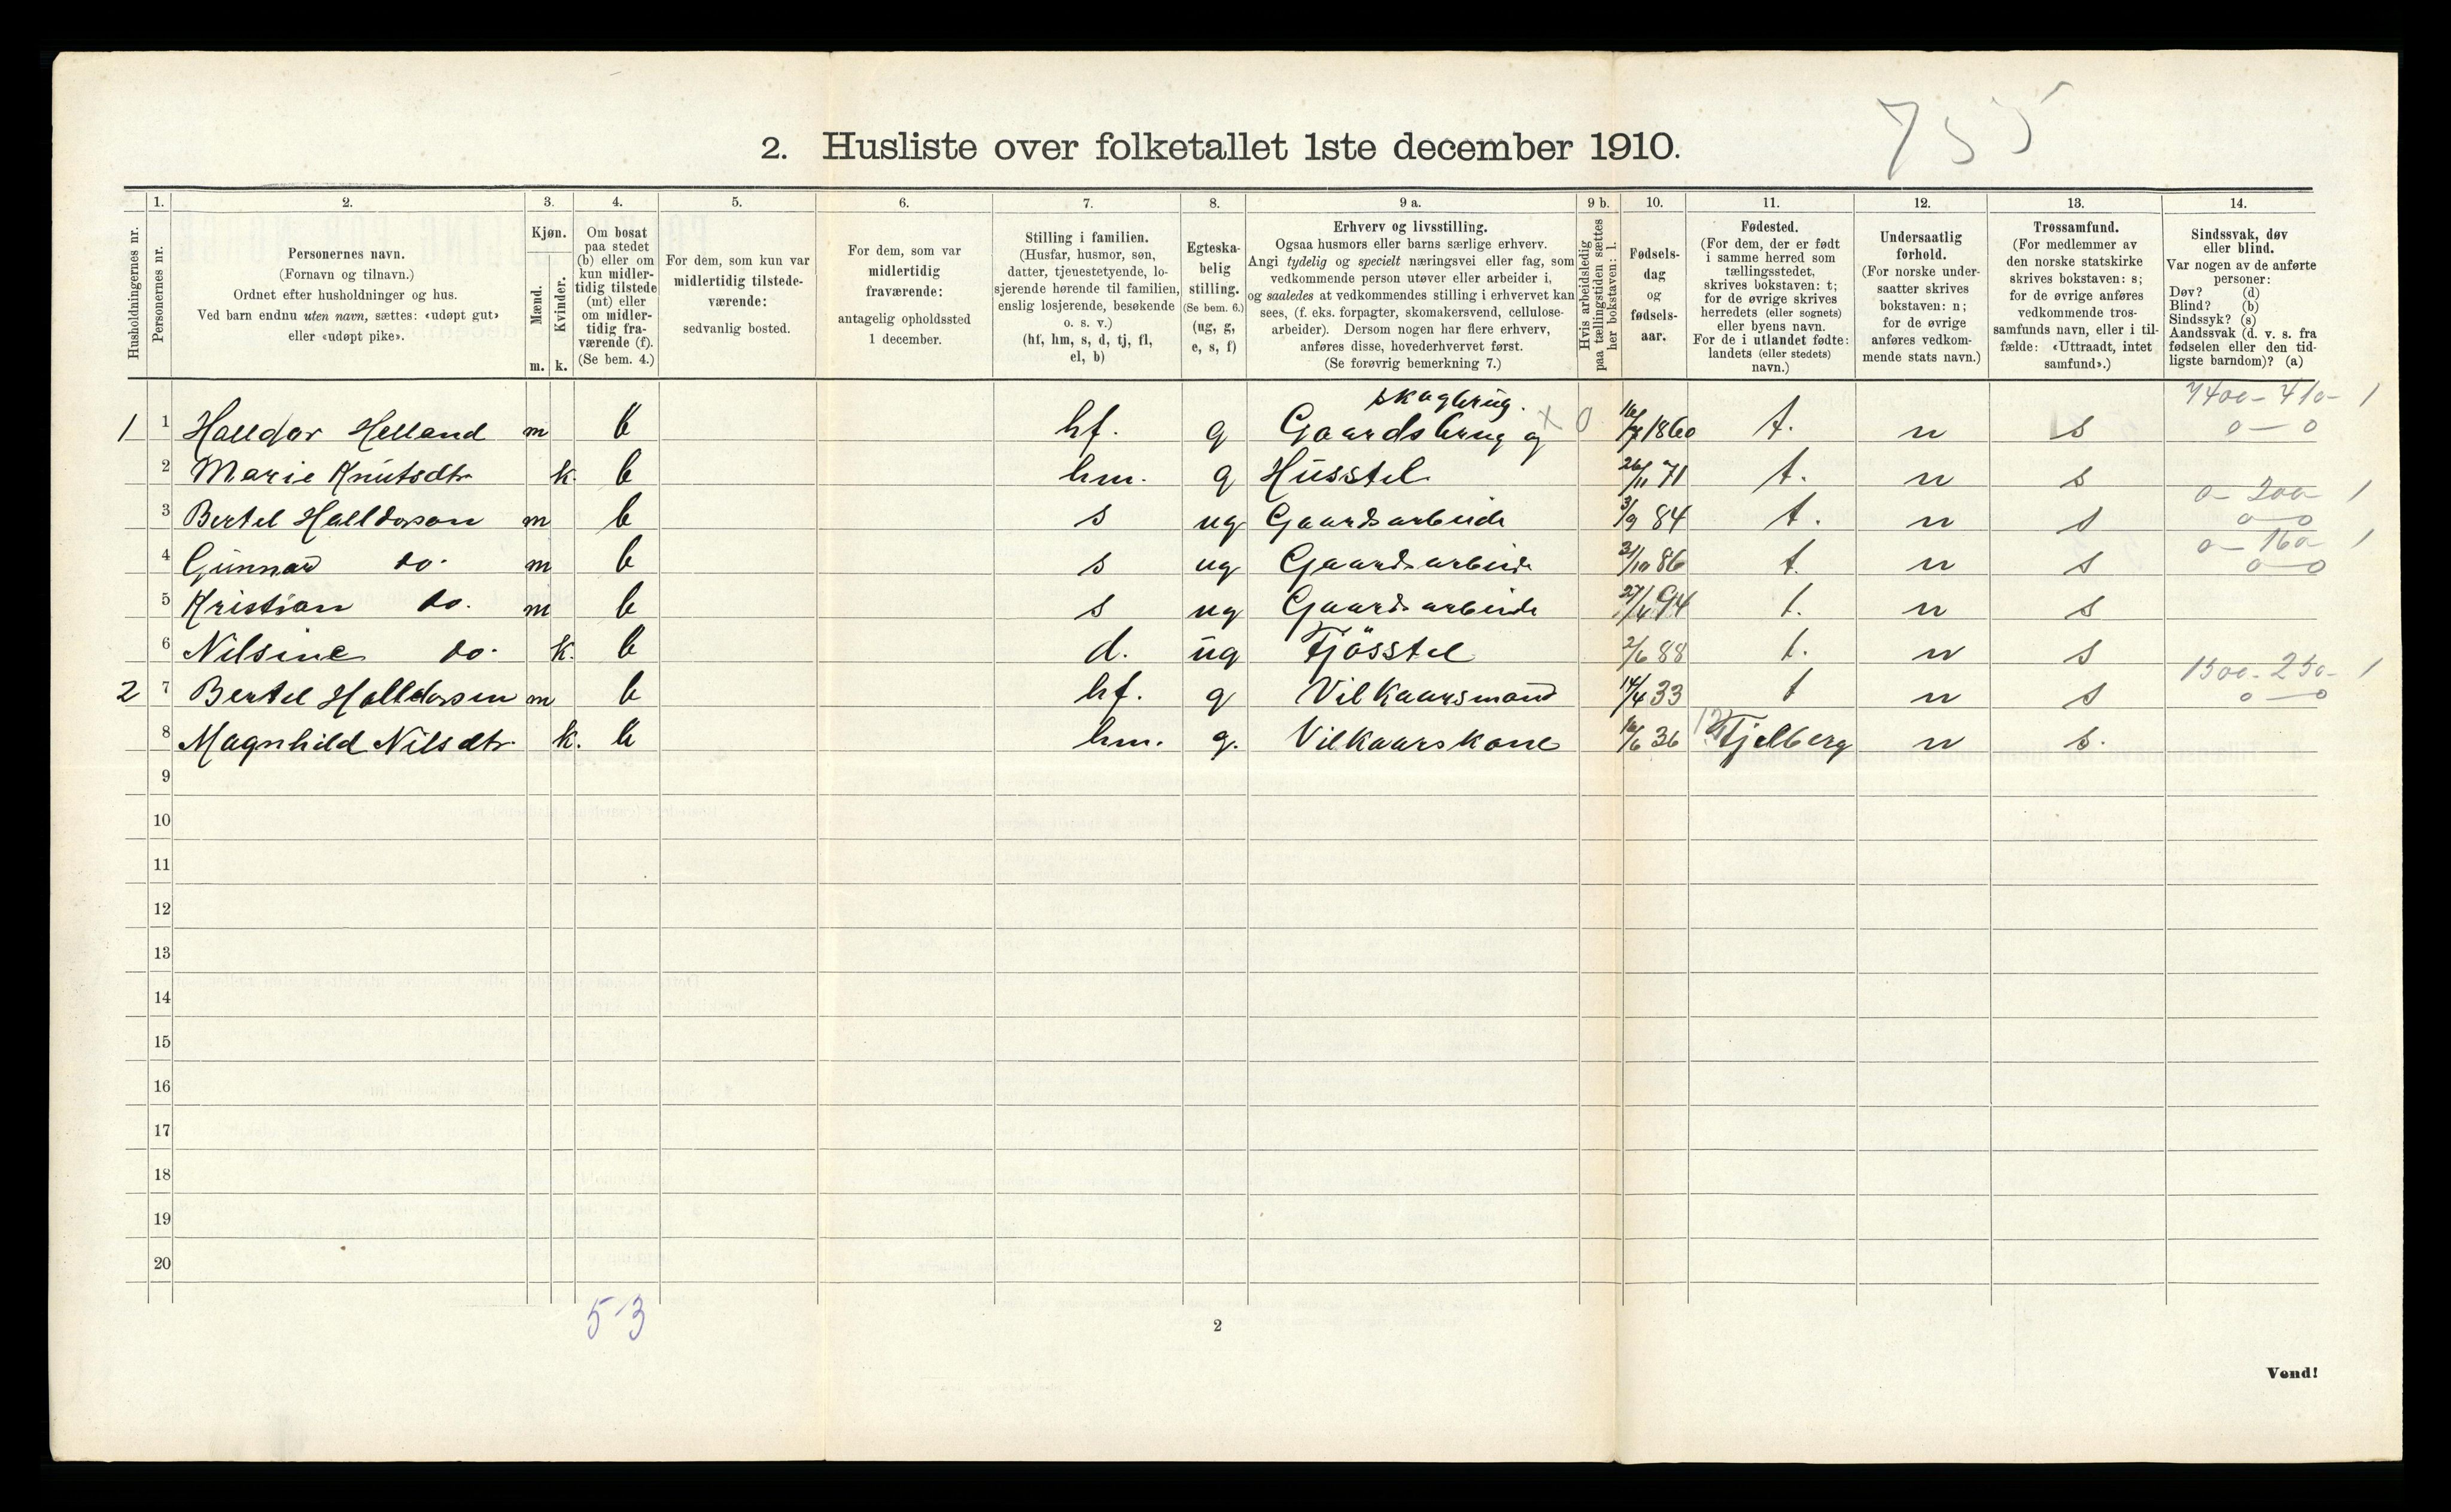 755
2. Husliste over folketallet 1ste december 1910.
Husholdningernes nr.
1.
Personernes nr.
2.
Personernes navn.
(Fornavn og tilnavn.)
Ordnet efter husholdninger og hus.
Ved barn endnu uten navn, sættes: «udøpt gut»
eller «udøpt pike».
3.
Kjøn.
Mænd.
m.
Kvinder.
k.
4.
Om bosat
paa stedet
(b) eller om
kun midler-
tidig tilstede
(mt) eller
om midler-
tidig fra-
værende (f).
(Se bem. 4.)
5.
For dem, som kun var
midlertidig tilstede-
værende:
sedvanlig bosted.
6.
For dem, som var
midlertidig
fraværende:
antagelig opholdssted
1 december.
7.
Stilling i familien.
(Husfar, husmor, søn,
datter, tjenestetyende, lo-
sjerende hørende til familien,
enslig losjerende, besøkende
o. s. v.)
(hf, hm, s, d, tj, fl,
el, b)
8.
Egteska-
belig
stilling.
(Se bem. 6.)
(ug, g,
e, s, f)
9 a.
Erhverv og livsstilling.
Ogsaa husmors eller barns særlige erhverv.
Angi tydelig og specielt næringsvei eller fag, som
vedkommende person utøver eller arbeider i,
og saaledes at vedkommendes stilling i erhvervet kan
sees, (f. eks. forpagter, skomakersvend, cellulose-
arbeider). Dersom nogen har flere erhverv,
anføres disse, hovederhvervet først.
(Se forøvrig bemerkning 7.)
9 b.
Hvis arbeidsledig
paa tællingstiden sættes
her bokstaven: l.
10.
Fødsels-
dag
og
fødsels-
aar.
11.
Fødested.
(For dem, der er født
i samme herred som
tællingsstedet,
skrives bokstaven: t;
for de øvrige skrives
herredets (eller sognets)
eller byens navn.
For de i utlandet fødte:
landets (eller stedets)
navn.)
12.
Undersaatlig
forhold.
(For norske under-
saatter skrives
bokstaven: n;
for de øvrige
anføres vedkom-
mende stats navn.)
13.
Trossamfund.
(For medlemmer av
den norske statskirke
skrives bokstaven: s;
for de øvrige anføres
vedkommende tros-
samfunds navn, eller i til-
fælde: «Uttraadt, intet
samfund».)
14.
Sindssvak, døv
eller blind.
Var nogen av de anførte
personer:
Døv? (d)
Blind? (b)
Sindssyk? (s)
Aandssvak (d. v. s. fra
fødselen eller den tid-
ligste barndom)? (a)
skogbrug. 7400- 410- 1
1 1 Halldor Helland m b hf. g Gaardsbrug og x 0 1860 t. n s 0 — 0
2 Marie Knutsdtr k. b hm. g Husstel 26/11 71 t. n s
0- 200- 1
3 Bertel Halldorson m b s ug Gaardsarbeide 3/9 84 t. n s 0 — 0
0- 160- 1
4 Gunnar do. m b s ug Gaardsarbeide 31/10 86 t. n s 0 — 0
5 Kristian do. m b s ug Gaardsarbeide 27/4 94 t. n s
6 Nilsine do. k. b d. ug Fjösstel 2/6 88 t. n s
1500- 250- 1
2 7 Bertel Halldorsen m b hf. g Vilkaarsmand 14/4 33 t n s 0 — 0
8 Magnhild Nilsdtr. k. b hm. g. Vilkaarskone 16/6 36 Fjelberg n s.
9
10
11
12
13
14
15
16
17
18
19
20
5-3
2
Vend!